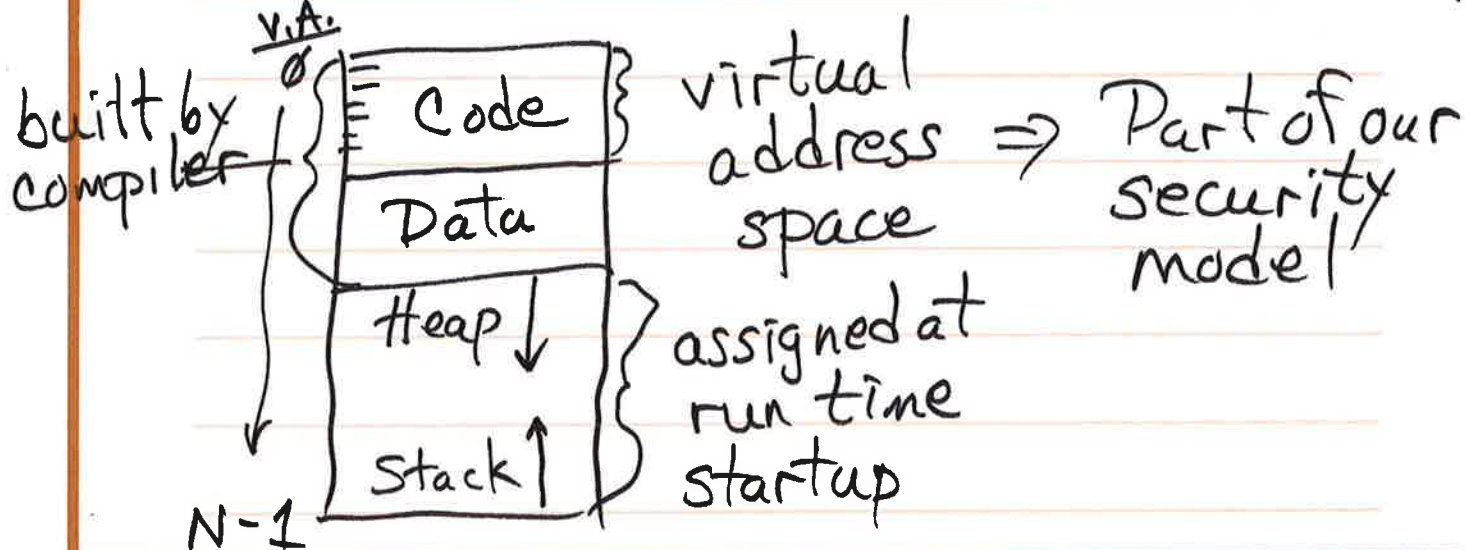 V.A.
0
built by
compiler
Code
Data
Heap
Stack
N-1
virtual
address
space
⇒ Part of our
security
model
assigned at
run time
startup